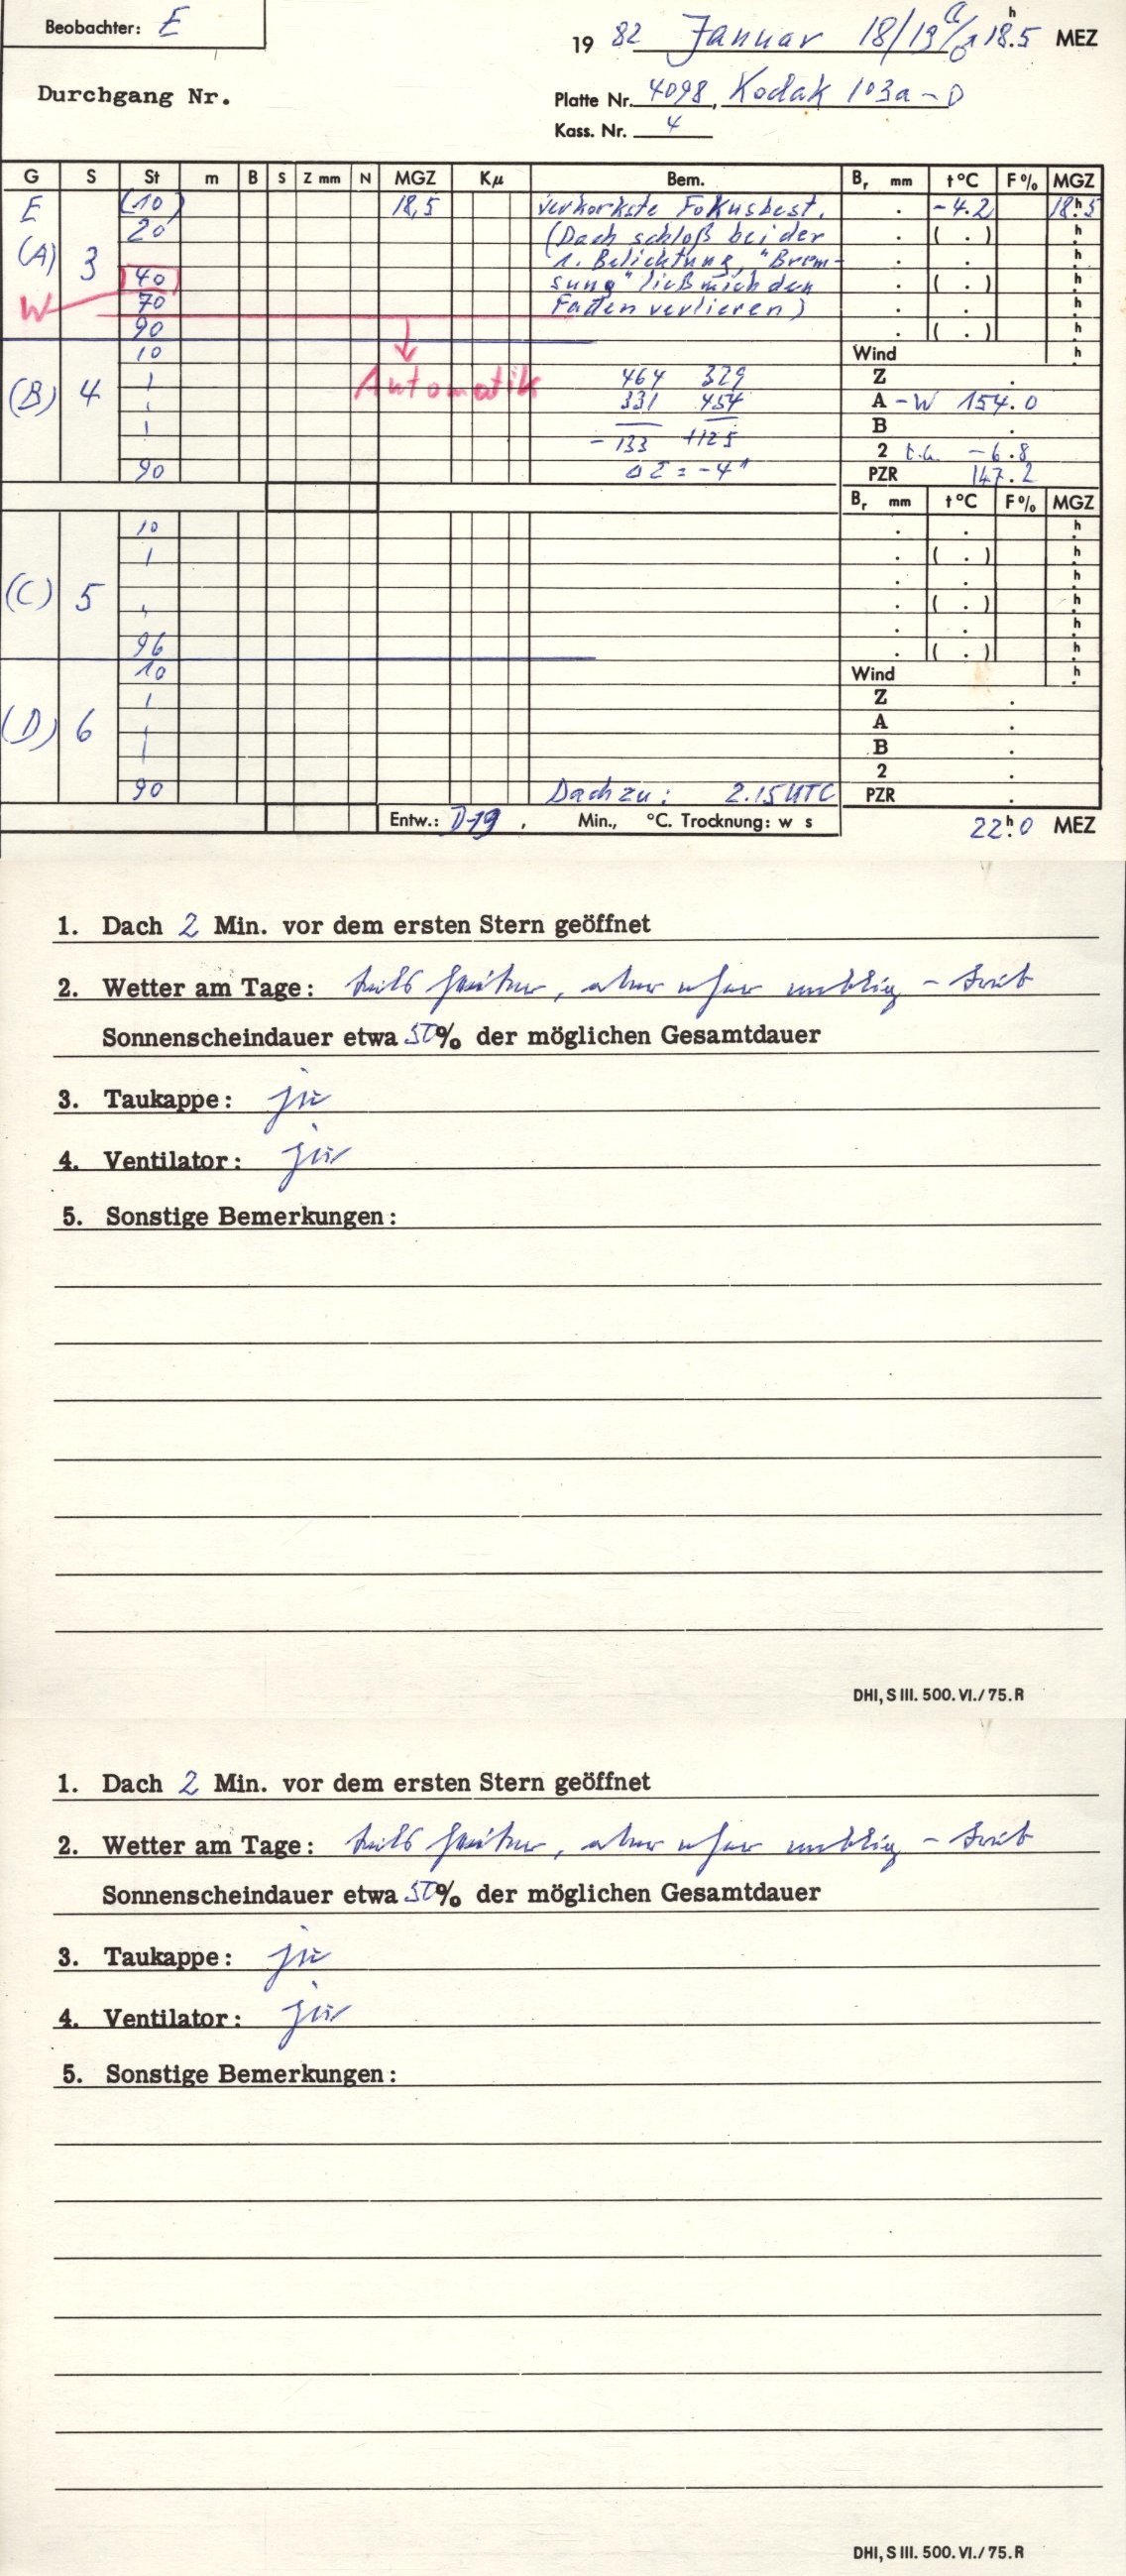 Beobachter: E
19 82 Januar 18/19 18.5 h MEZ
Durchgang Nr.
Platte Nr. 4098, Kodak 103a-D
Kass. Nr. 4
G S St m B S Z mm N MGZ Kμ Bem. Br mm t°C F% MGZ
E (10) 18,5 verkorkste Fokusbest. . -4.2 18h.5
20 (Dach schloß bei der . ( . ) h
(A) 3 1. Belichtung, "Brem- . . h
40 sung" ließ mich den . ( . ) h
W 70 Faden verlieren) . . h
90 . ( . ) h
10 Wind h
Automatik 464 329 Z .
(B) 4 331 454 A -W 154.0
B .
-133 +125 2 -6.8
90 ΔΣ = -4" PZR 147.2
Br mm t°C F% MGZ
10 . . h
. ( . ) h
. . h
(C) 5 . ( . ) h
. . h
96 . ( . ) h
10 Wind h
Z .
(D) 6 A .
B .
2 .
90 Dach zu: 2.15 UTC PZR .
Entw.: D-19, Min., °C. Trocknung: w s 22h.0 MEZ
1. Dach 2 Min. vor dem ersten Stern geöffnet
2. Wetter am Tage: teils heiter, aber eher neblig - trüb
Sonnenscheindauer etwa 50% der möglichen Gesamtdauer
3. Taukappe: ja
4. Ventilator: ja
5. Sonstige Bemerkungen:
DHI, S III. 500. VI./75. R
1. Dach 2 Min. vor dem ersten Stern geöffnet
2. Wetter am Tage: teils heiter, aber eher neblig - trüb
Sonnenscheindauer etwa 50% der möglichen Gesamtdauer
3. Taukappe: ja
4. Ventilator: ja
5. Sonstige Bemerkungen:
DHI, S III. 500. VI./75. R